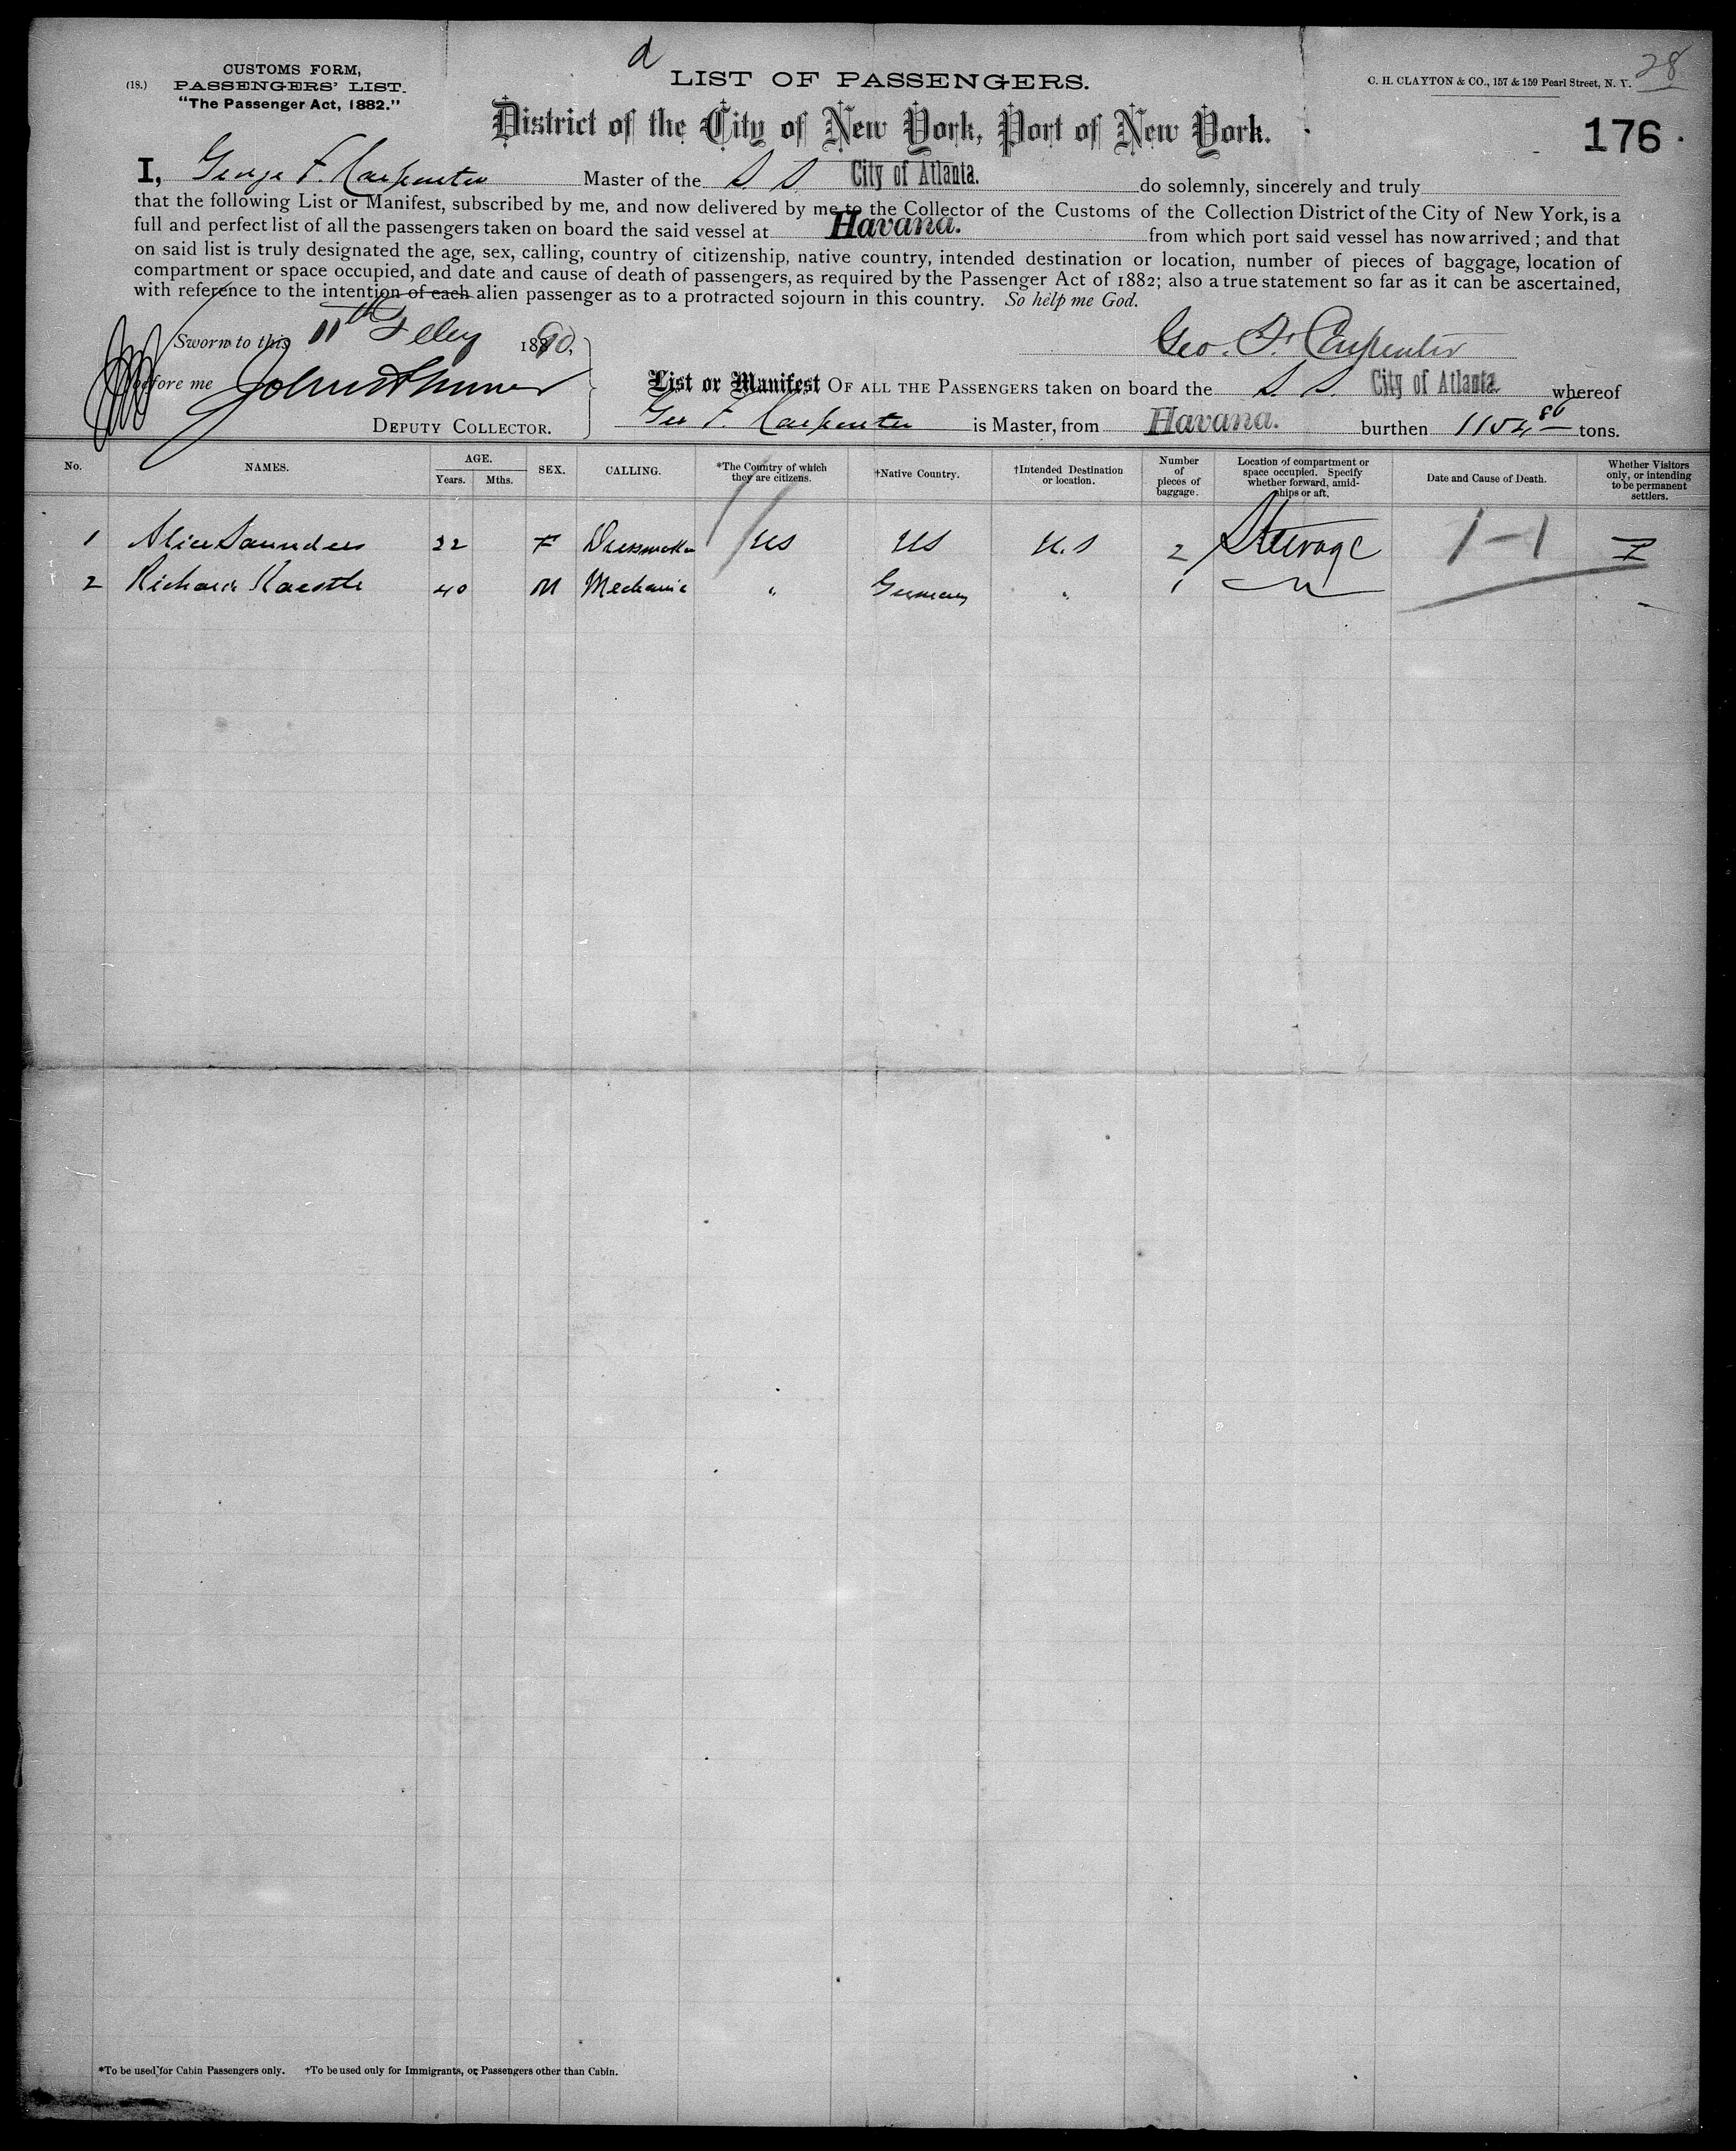 d
28
(18.)
CUSTOMS FORM,
PASSENGERS' LIST.
"The Passenger Act, 1882."
LIST OF PASSENGERS.
C. H. CLAYTON & CO., 157 & 159 Pearl Street, N. Y.
District of the City of New York, Port of New York.
176
I, George F. Carpenter Master of the S S City of Atlanta. do solemnly, sincerely and truly
that the following List or Manifest, subscribed by me, and now delivered by me to the Collector of the Customs of the Collection District of the City of New York, is a
full and perfect list of all the passengers taken on board the said vessel at Havana. from which port said vessel has now arrived; and that
on said list is truly designated the age, sex, calling, country of citizenship, native country, intended destination or location, number of pieces of baggage, location of
compartment or space occupied, and date and cause of death of passengers, as required by the Passenger Act of 1882; also a true statement so far as it can be ascertained,
with reference to the intention of each alien passenger as to a protracted sojourn in this country. So help me God.
Sworn to this 11th Feby 1890,
Geo. F. Carpenter
before me
DEPUTY COLLECTOR.
List or Manifest OF ALL THE PASSENGERS taken on board the S S City of Atlanta whereof
Geo F. Carpenter is Master, from Havana. burthen 1154 80 tons.
No. NAMES. AGE. Years. Mths. SEX. CALLING. *The Country of which they are citizens. †Native Country. †Intended Destination or location. Number of pieces of baggage. Location of compartment or space occupied. Specify whether forward, amidships or aft. Date and Cause of Death. Whether Visitors only, or intending to be permanent settlers.
1 Alice Saunders 22 F Dressmaker US US U.S 2 Steerage 1-1
2 Richard Kaestle 40 M Mechanic " Germany " 1
*To be used for Cabin Passengers only. †To be used only for Immigrants, or Passengers other than Cabin.